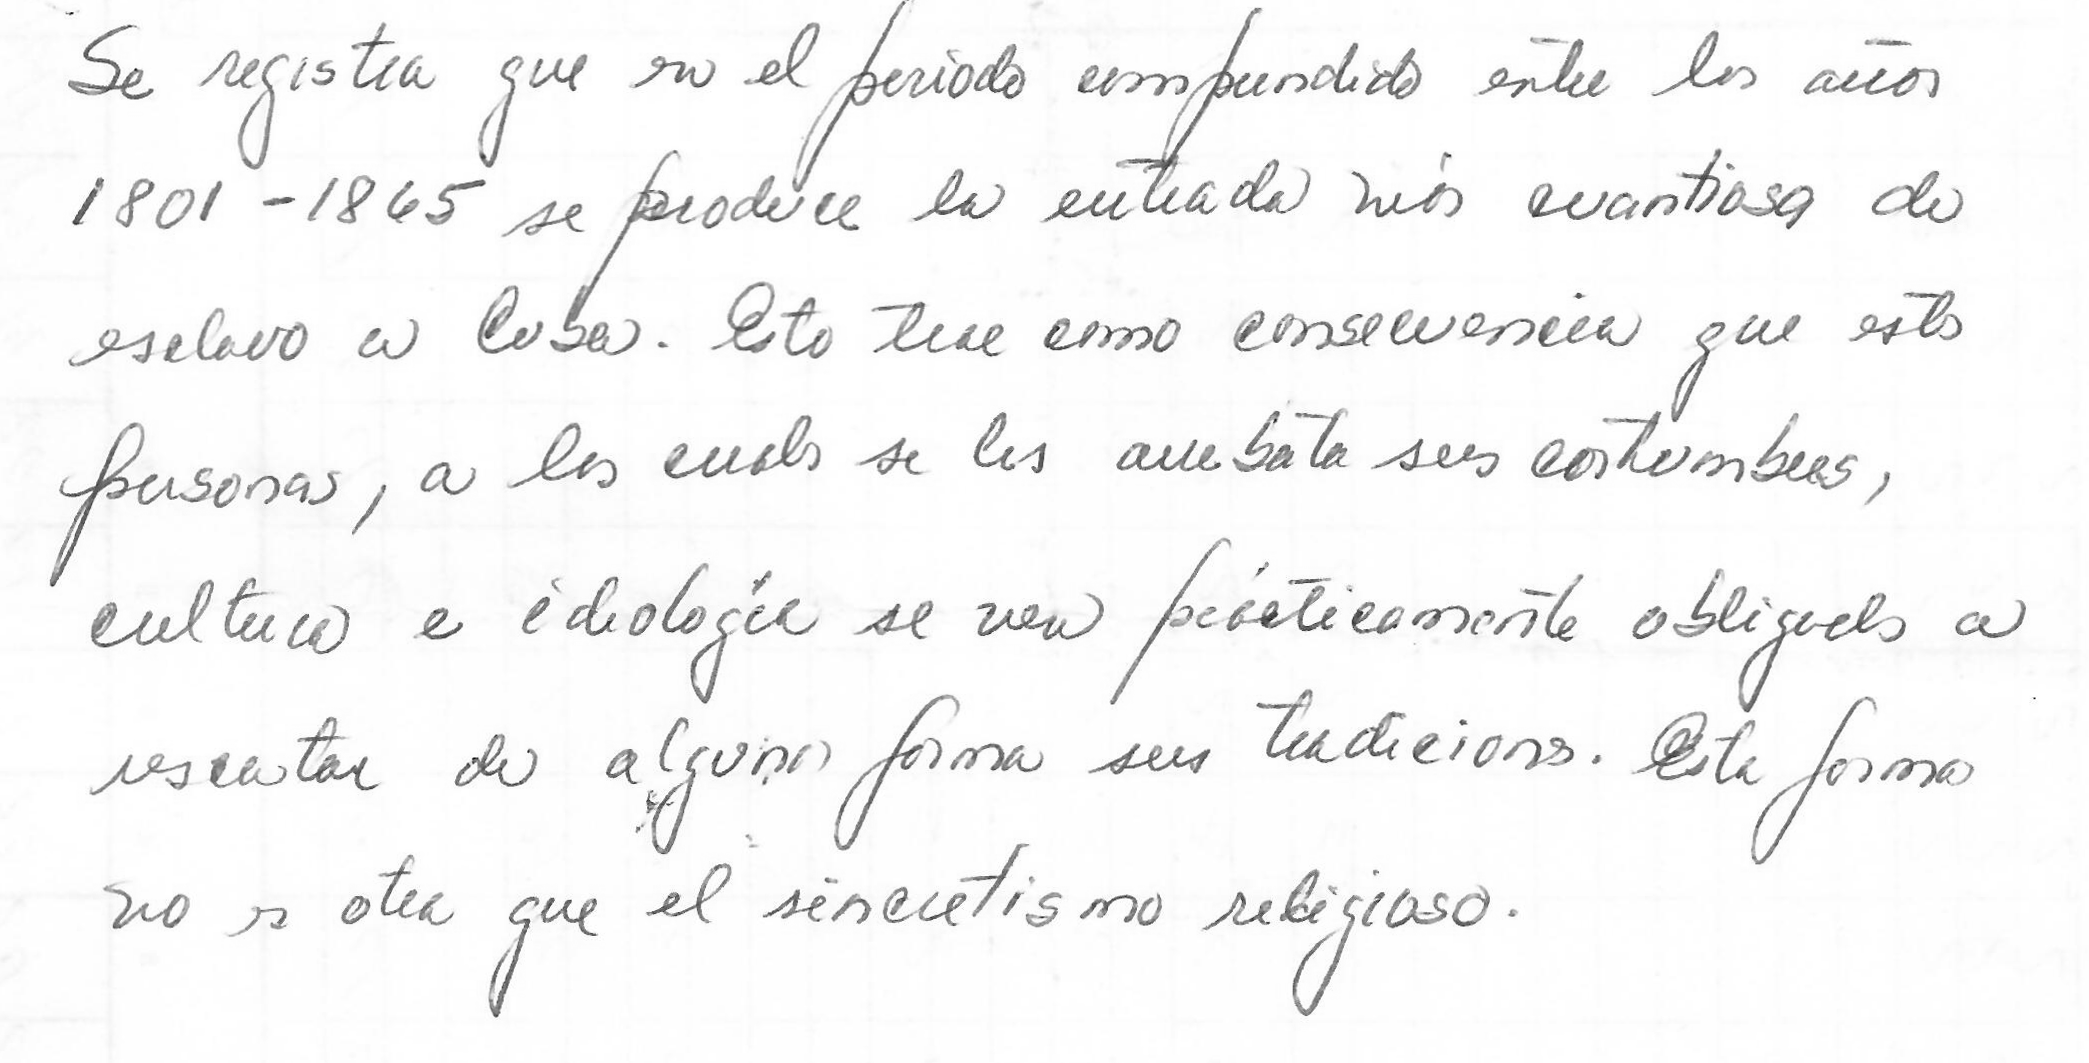 Se registra que en el periodo comprendido entre los años
1801-1865 se produce la entrada más cuantiosa de
esclavo a Cuba. Esto trae como consecuencia que estas
personas, a los cuales se les arrebata sus costumbres,
cultura e ideología se ven prácticamente obligados a
rescatar de alguna forma sus tradiciones. Esta forma
no es otra que el sincretismo religioso.